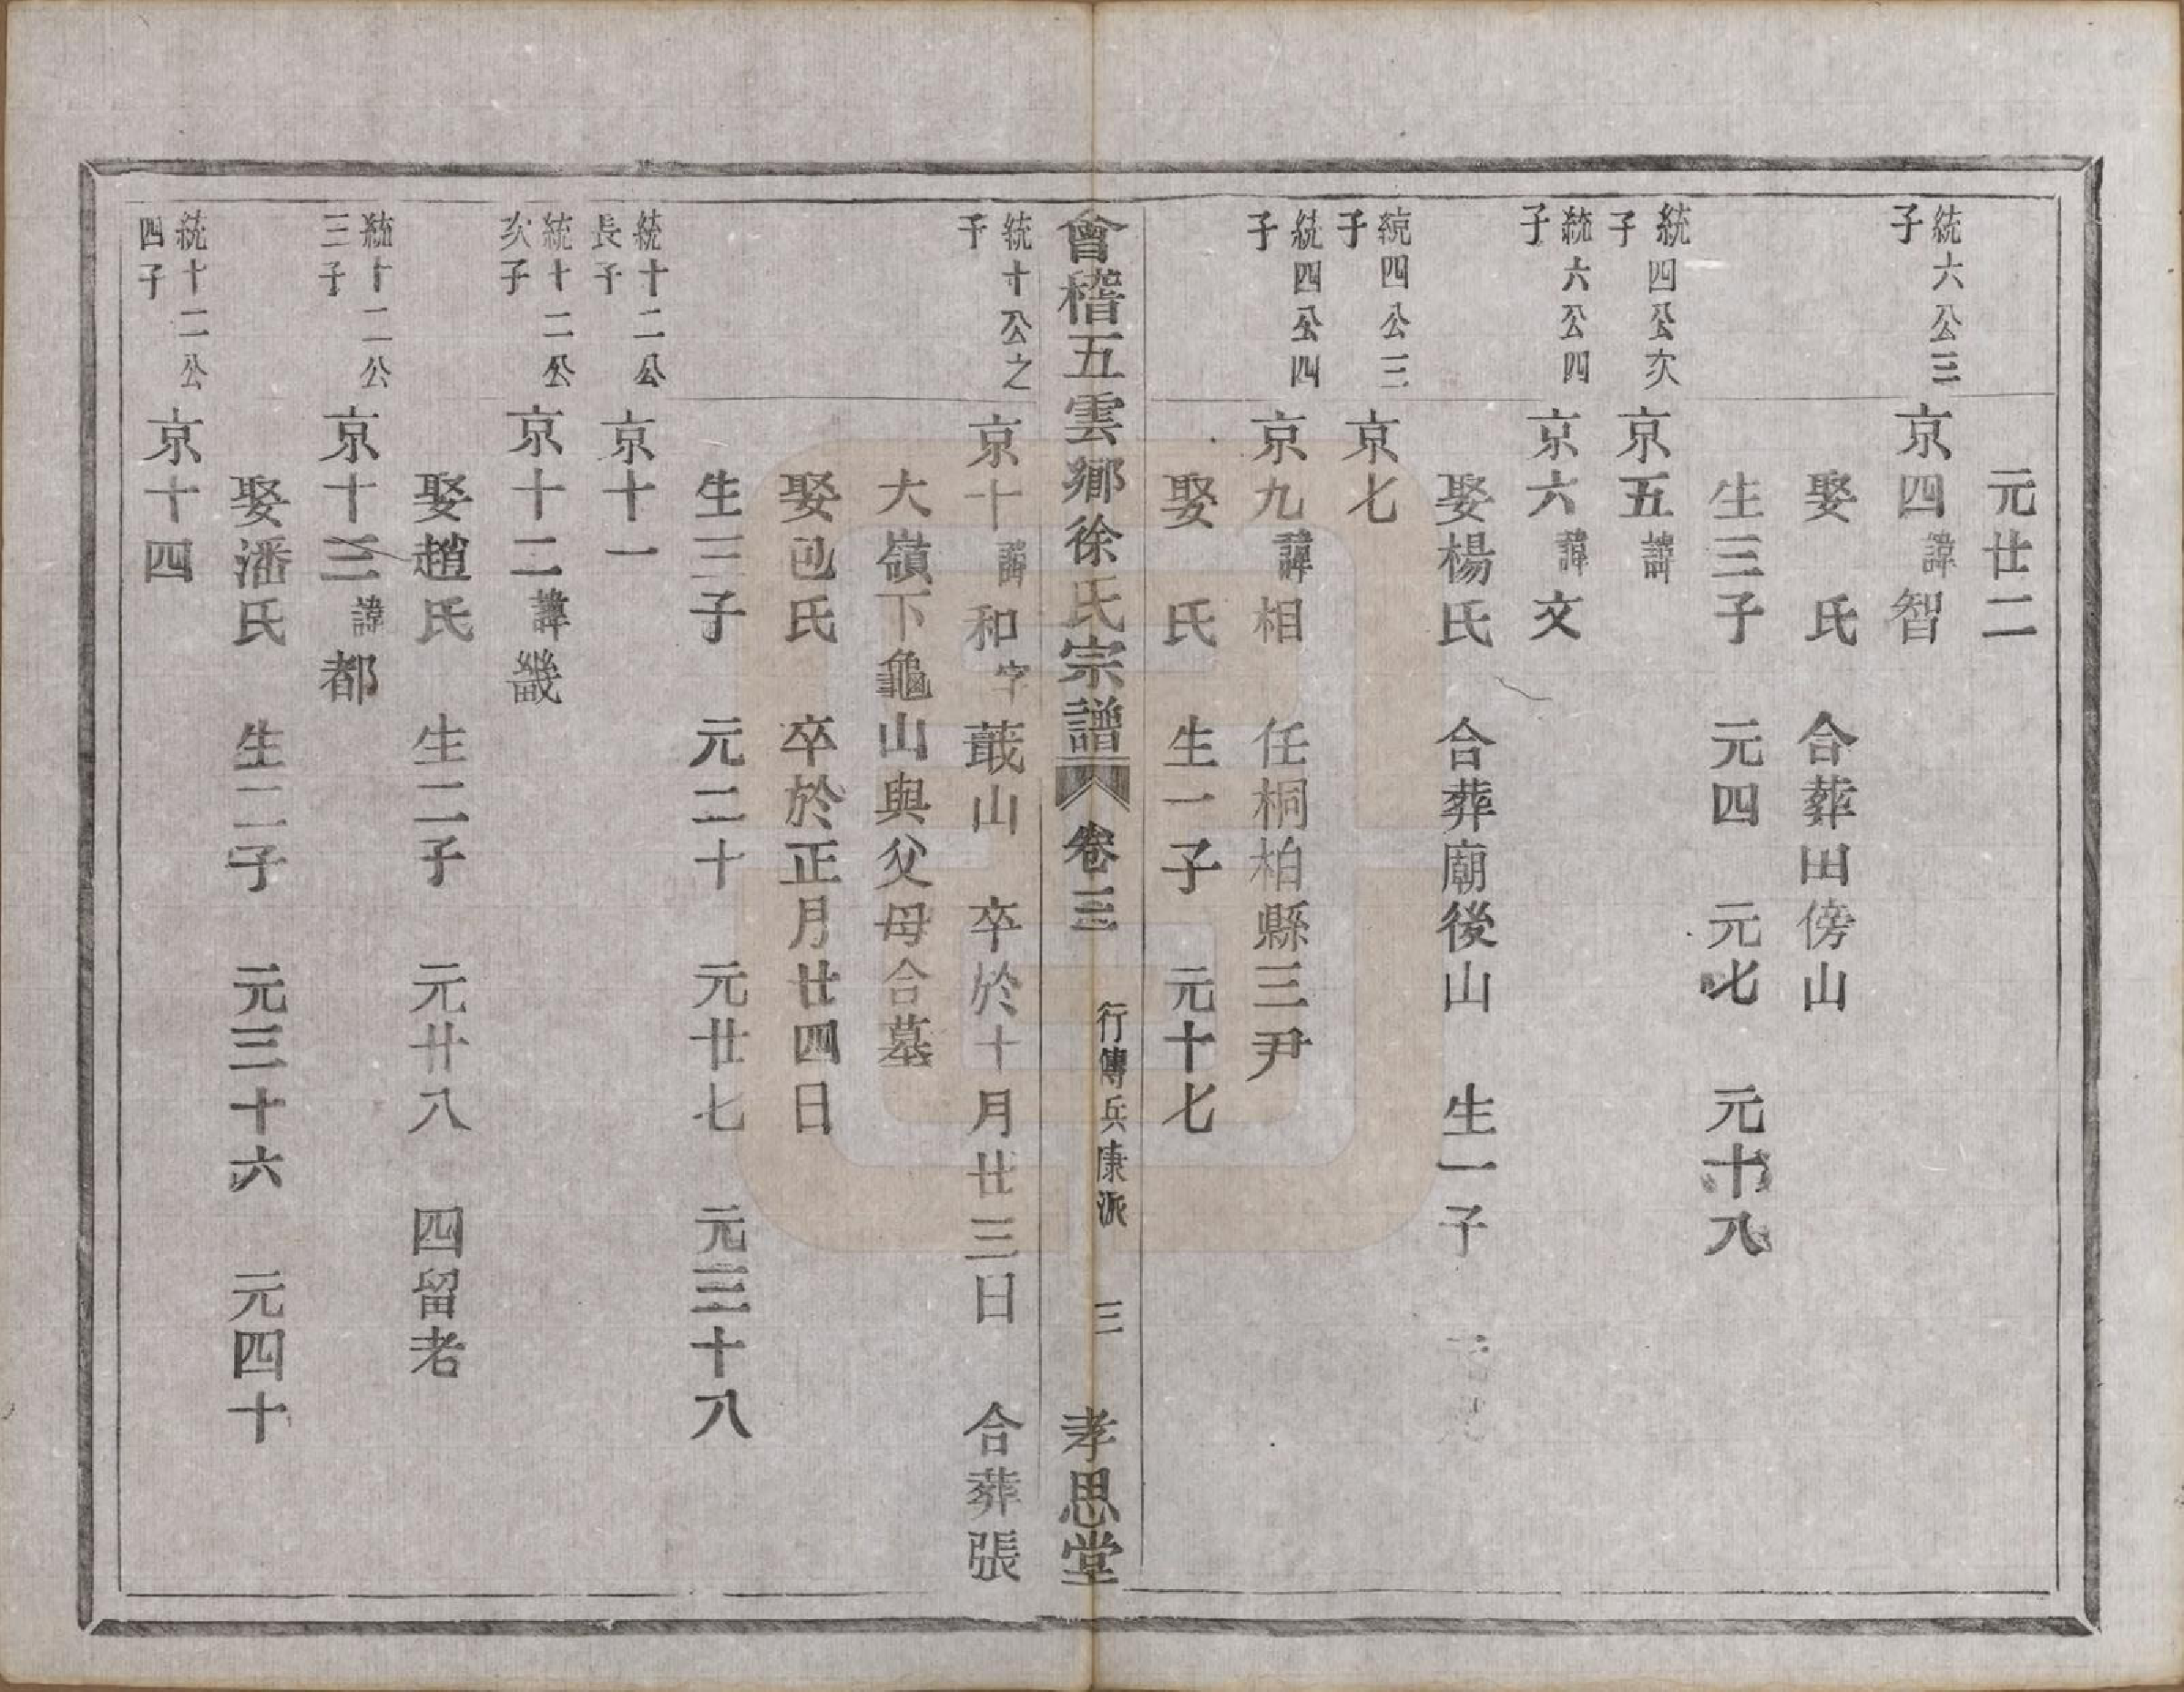 元廿二
統六公三子
京四諱智
娶　氏　合葬田傍山
生三子　元四　元七　元十八
統四公次子
京五諱
統六公四子
京六諱文
娶楊氏　合葬廟後山　生一子
統四公三子
京七
統四公四子
京九諱相　任桐柏縣三尹
娶　氏　生一子　元十七
會稽五雲鄉徐氏宗譜　卷三　行傳兵康派　三　孝思堂
統十公之子
京十諱和字蕺山　卒於十月廿三日　合葬張
大嶺下龜山與父母合墓
娶包氏　卒於正月廿四日
生三子　元二十　元廿七　元三十八
統十二公長子
京十一
統十二公次子
京十二諱畿
娶趙氏　生二子　元廿八　四留老
統十二公三子
京十三諱都
娶潘氏　生二子　元三十六　元四十
統十二公四子
京十四